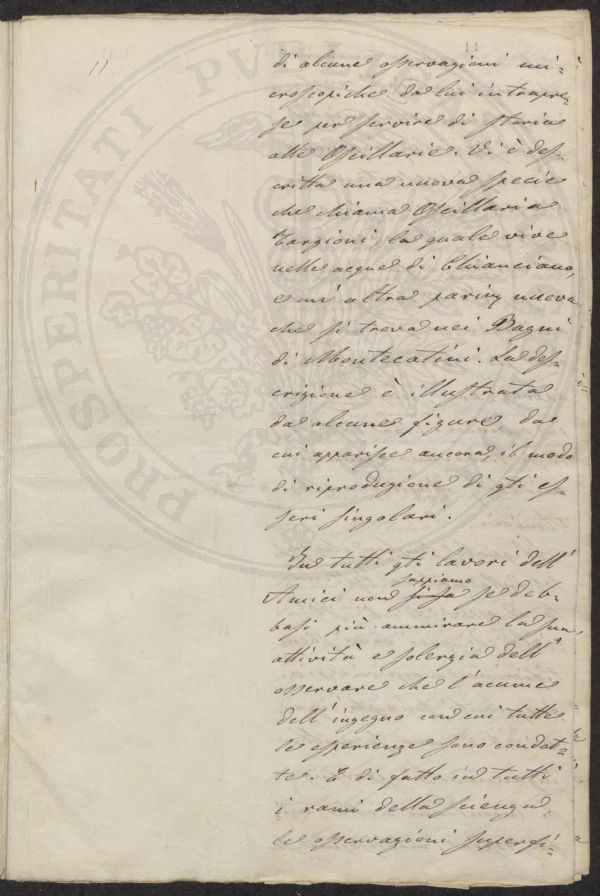 11
11
di alcune osservazioni mi-
croscopiche da lui intrapre-
se per servire di storia
alle Oscillarie. Vi è des-
critta una nuova specie
che chiama Oscillaria
Targioni, la quale vive
nelle acque di Chianciano,
e un'altra parim nuova
che si trova nei Bagni
di Montecatini. La des-
crizione è illustrata
da alcune figure, da
cui apparisce ancora, il modo
di riproduzione di qti es-
seri singolari.
In tutti qti lavori dell'
sappiamo
Amici non si sa se deb-
basi più ammirare la sua
attività e solerzia dell'
osservare che l'acume
dell'ingegno con cui tutte
le esperienze sono condot-
te. E di fatto in tutti
i rami della scienza,
le osservazioni superfi-
PROSPERITATI PVBLICAE